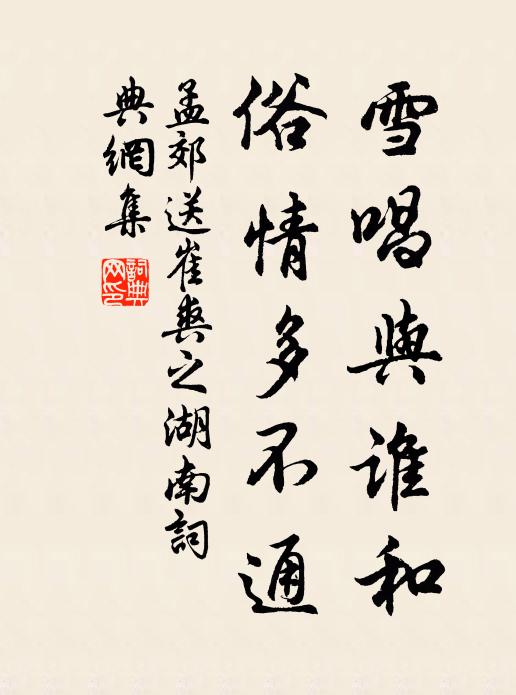 雪唱與誰和
俗情多不通
孟郊送崔爽之湖南詞
典網集
詞典
网印